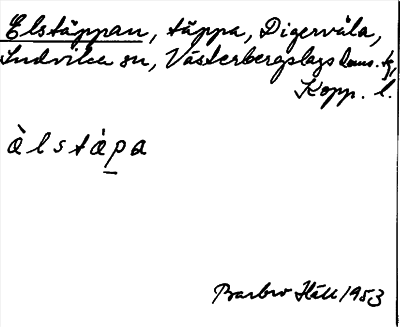 Elstäppan, täppa, Digervåla,
Ludvika sn, Västerbergslags doms. tg,
Kopp. l.
àlstápa
Barbro Häll 1953